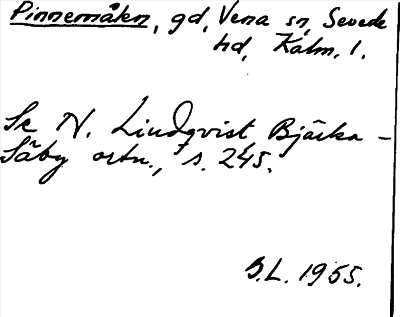 Pinnemåken, gd, Vena sn, Sevede
hd, Kalm. l.
Se N. Lindqvist Bjärka-
Säby ortn., s. 245.
B.L. 1955.